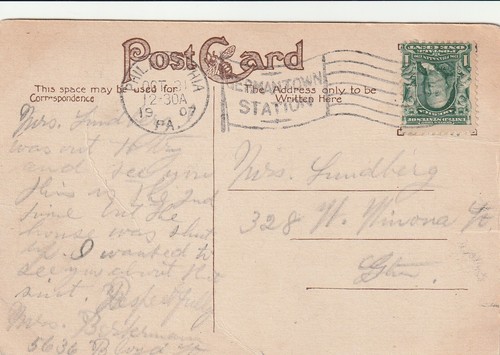 Post Card
This space may be used for
Correspondence
The Address only to be
Written Here
PHILADELPHIA
OCT
12-30A
1907
PA.
GERMANTOWN
STATION
Mrs. Lundberg
was out to
and see you
this is 2nd
time but the
house was shut
up. I wanted to
see you about the
suit. Respectfully
Mrs.
5636 Boyd St
Mrs. Lundberg
328 W. Winona St
Gtn.